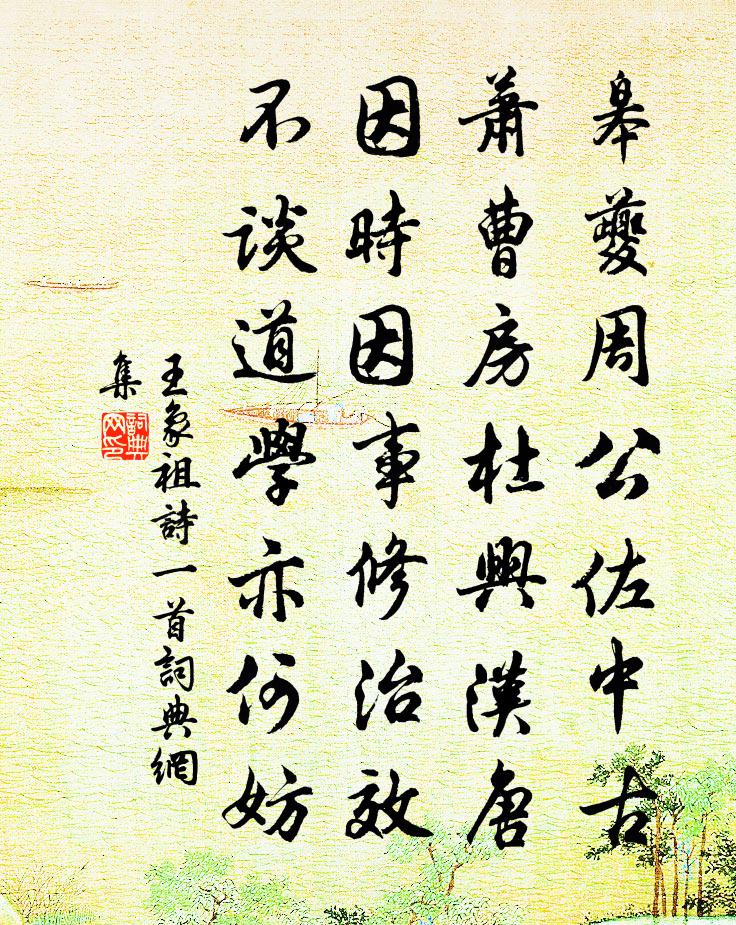 皋夔周公佐中古
蕭曹房杜興漢唐
因時因事修治效
不談道學亦何妨
王象祖詩一首詞典網
集
詞典
网印